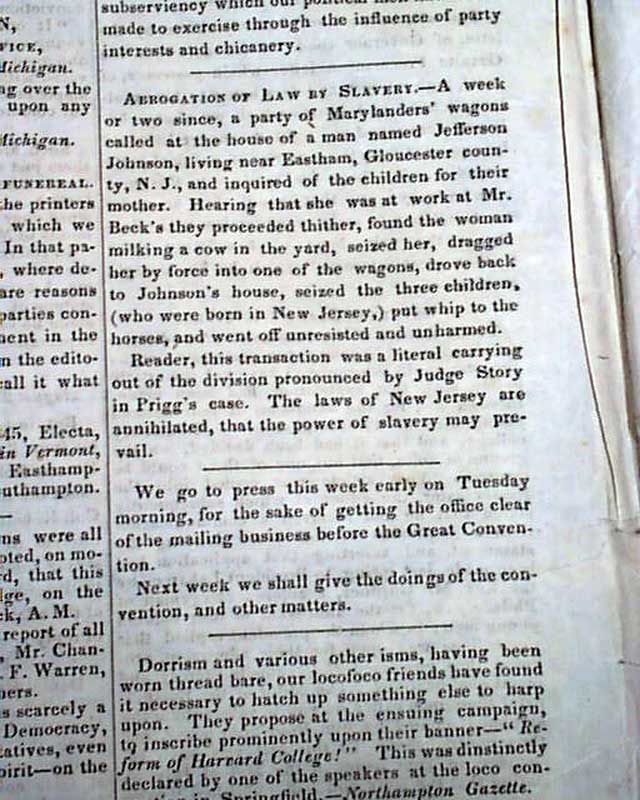 N,
VICE,
Michigan.
ng over the
upon any
Michigan.
FUNEREAL.
the printers
which we
In that pa-
, where de-
are reasons
parties con-
nent in the
n the edito-
call it what
45, Electa,
in Vermont,
Easthamp-
uthampton.
ns were all
oted, on mo-
rd, that this
lge, on the
ck, A. M.
report of all
, Mr. Chan-
. F. Warren,
ners.
s scarcely a
Democracy,
tatives, even
pirit—on the
subserviency which our political
made to exercise through the influence of party
interests and chicanery.
ABROGATION OF LAW BY SLAVERY.—A week
or two since, a party of Marylanders' wagons
called at the house of a man named Jefferson
Johnson, living near Eastham, Gloucester coun-
ty, N. J., and inquired of the children for their
mother. Hearing that she was at work at Mr.
Beck's they proceeded thither, found the woman
milking a cow in the yard, seized her, dragged
her by force into one of the wagons, drove back
to Johnson's house, seized the three children,
(who were born in New Jersey,) put whip to the
horses, and went off unresisted and unharmed.
Reader, this transaction was a literal carrying
out of the division pronounced by Judge Story
in Prigg's case. The laws of New Jersey are
annihilated, that the power of slavery may pre-
vail.
We go to press this week early on Tuesday
morning, for the sake of getting the office clear
of the mailing business before the Great Conven-
tion.
Next week we shall give the doings of the con-
vention, and other matters.
Dorrism and various other isms, having been
worn thread bare, our locofoco friends have found
it necessary to hatch up something else to harp
upon. They propose at the ensuing campaign,
to inscribe prominently upon their banner—"Re-
form of Harvard College!" This was dinstinctly
declared by one of the speakers at the loco con-
in Springfield.—Northampton Gazette.